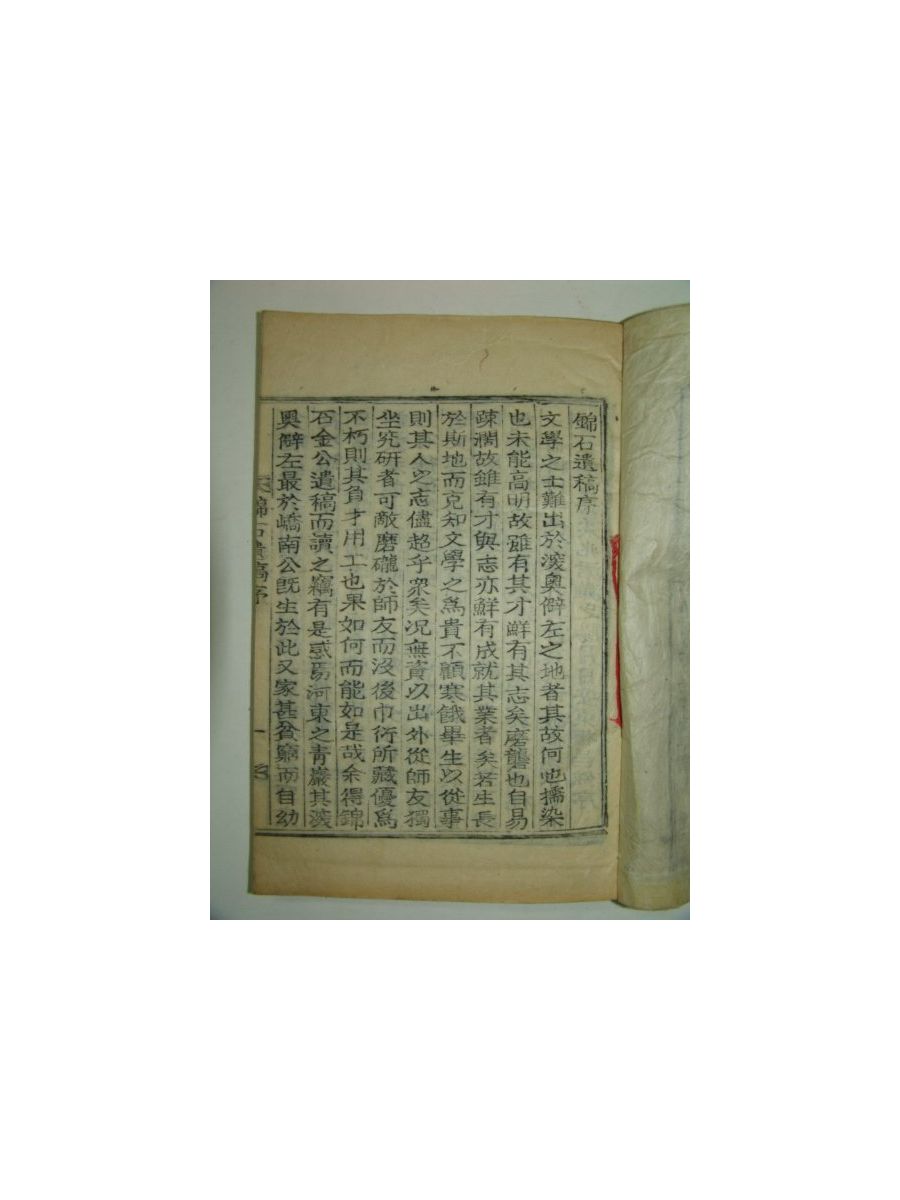 錦石遺稿序
文學之士難出於深奧僻左之地者其故何也擩染
也未能高明故雖有其才鮮有其志矣磨礱也自易
疎濶故雖有才與志亦鮮有成就其業者矣若生長
於斯地而克知文學之爲貴不顧寒餓畢生以從事
則其人之志儘超乎衆矣况無資以出外從師友獨
坐究硏者可敵磨礲於師友而沒後巾衍所藏優爲
不朽則其負才用工也果如何而能如是哉余得錦
石金公遺稿而讀之竊有是感焉河東之靑巖其深
奧僻左最於嶠南公旣生於此又家甚貧窮而自幼
錦石遺稿序
一